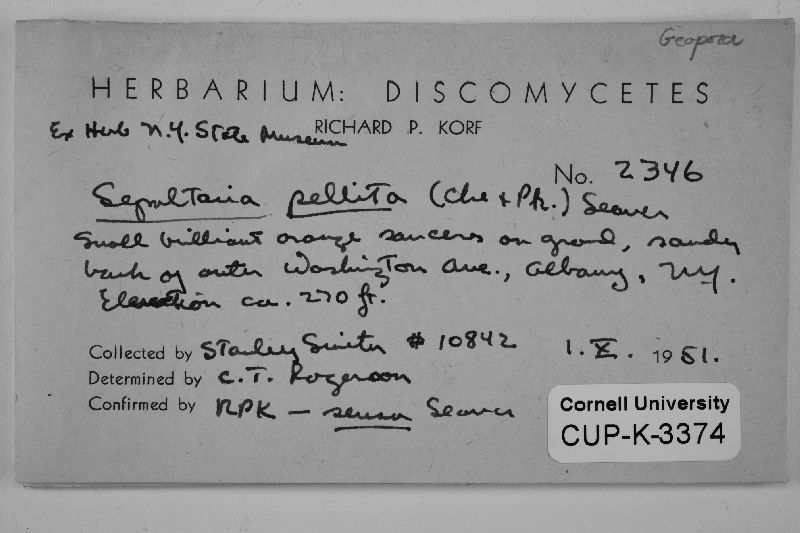 Geopora
HERBARIUM: DISCOMYCETES
Ex Herb N.Y. State Museum
RICHARD P. KORF
No. 2346
Sepultaria pellita (Cke & Pk.) Seaver
Small brilliant orange saucers on ground, sandy
bank of outer Washington Ave., Albany, N.Y.
Elevation ca. 270 ft.
Collected by Stanley Smith # 10842 1. X. 1951.
Determined by C. T. Rogerson
Confirmed by RPK — sensu Seaver
Cornell University
CUP-K-3374